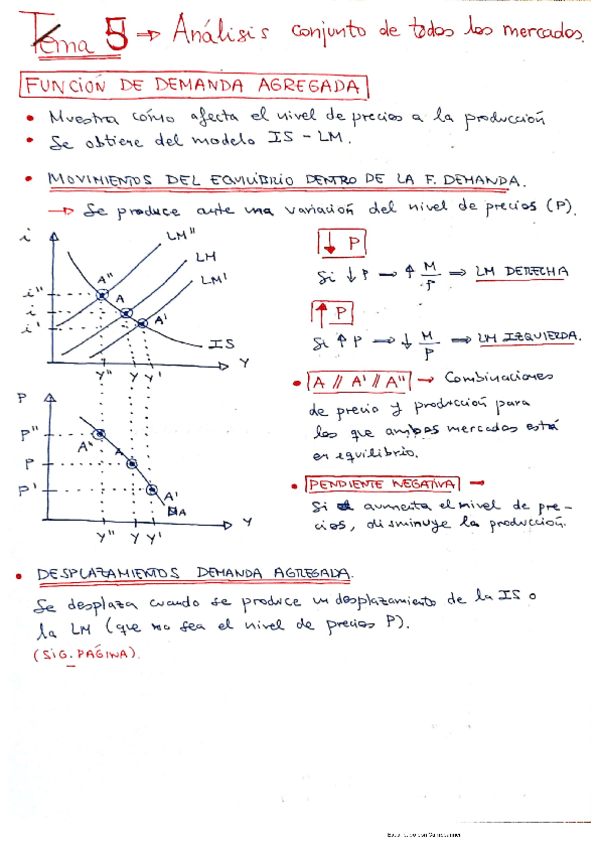 Tema 5 → Análisis conjunto de todos los mercados.
FUNCIÓN DE DEMANDA AGREGADA
• Muestra cómo afecta el nivel de precios a la producción
• Se obtiene del modelo IS - LM.
• MOVIMIENTOS DEL EQUILIBRIO DENTRO DE LA F. DEMANDA.
→ Se produce ante una variación del nivel de precios (P).
i
LM"
LM
LM'
A"
A
A'
i"
i
i'
IS
Y
Y" Y Y'
↓ P
Si ↓ P → ↑ M/P ⇒ LM DERECHA
↑ P
Si ↑ P → ↓ M/P ⇒ LM IZQUIERDA.
• A // A' // A" → Combinaciones
de precio y producción para
los que ambos mercados está
en equilibrio.
• PENDIENTE NEGATIVA →
Si aumenta el nivel de pre-
cios, disminuye la producción.
P
P"
P
P'
A"
A
A'
DA
Y
Y" Y Y'
• DESPLAZAMIENTOS DEMANDA AGREGADA.
Se desplaza cuando se produce un desplazamiento de la IS o
la LM (que no sea el nivel de precios P).
(SIG. PÁGINA).